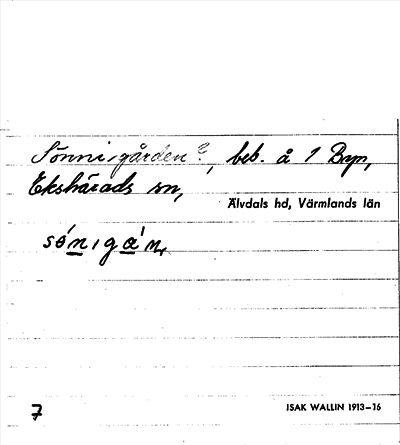 Sönnisgården?, beb. å 1 Byn,
Ekshärads sn,
Älvdals hd, Värmlands län
7
ISAK WALLIN 1913–16